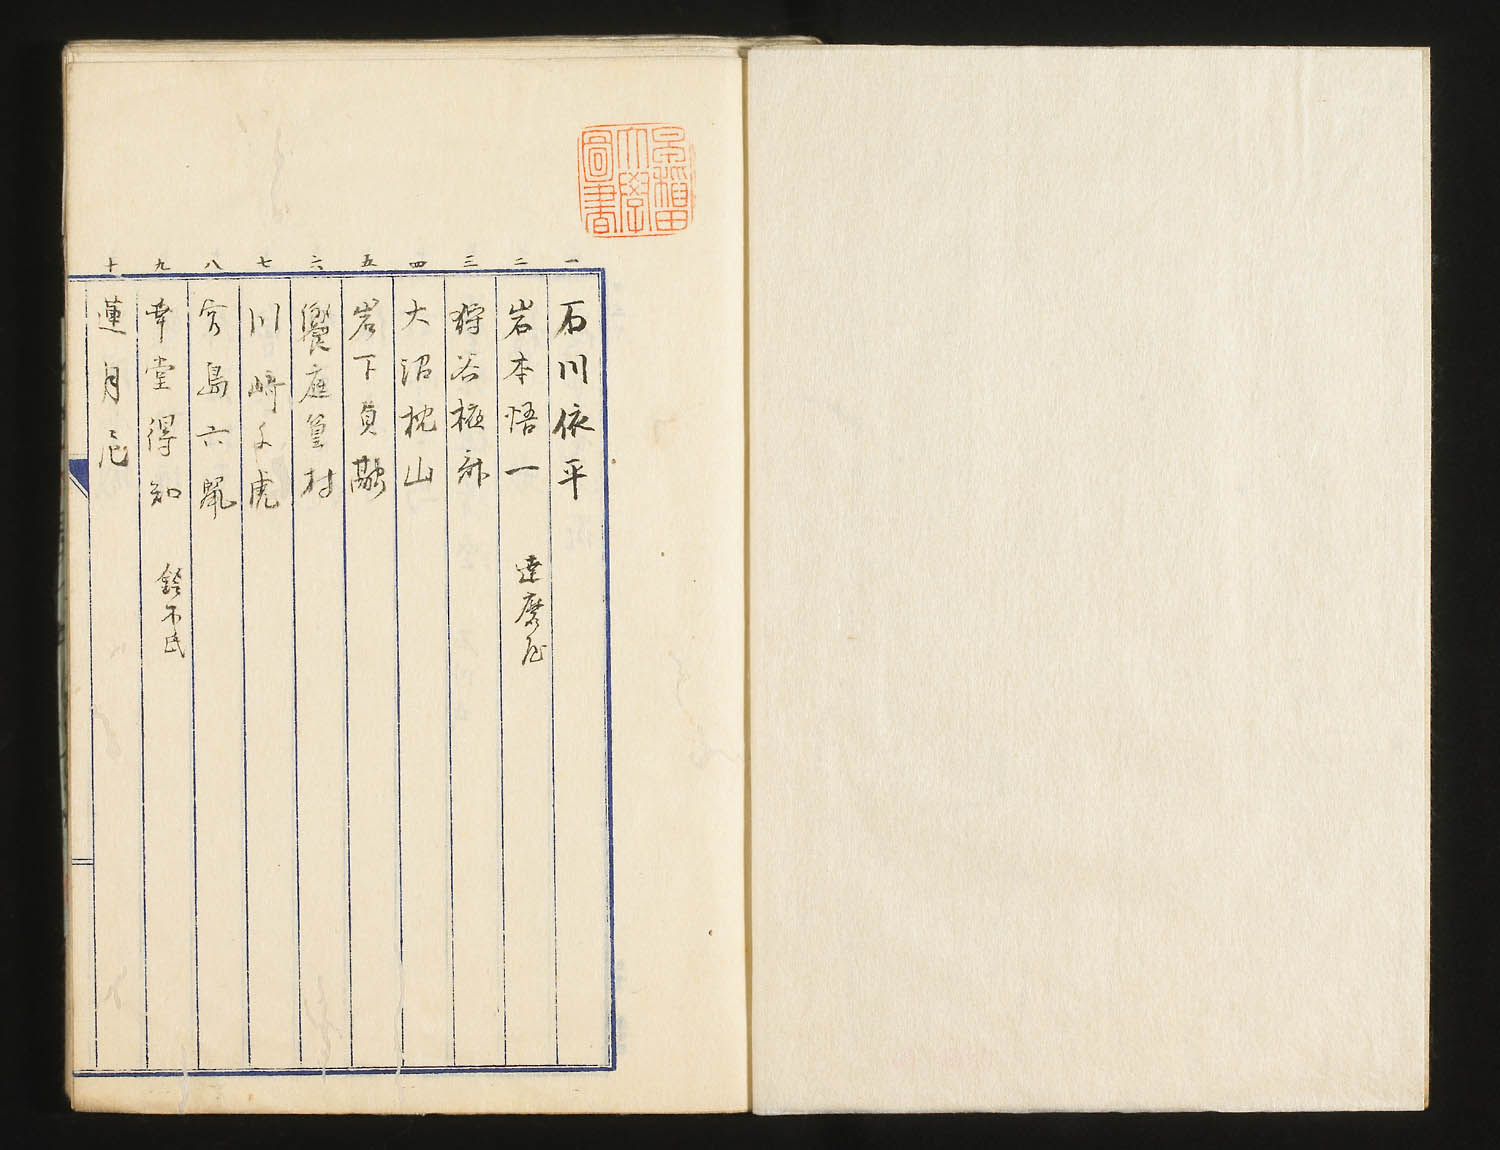 早稲田
大學
圖書
一 石川依平
二 岩本悟一 達磨屋
三 狩谷棭斎
四 大沼枕山
五 岩下貞融
六 饗庭篁村
七 川崎千虎
八 寳島六
九 幸堂得知 鈴木氏
十 蓮月尼